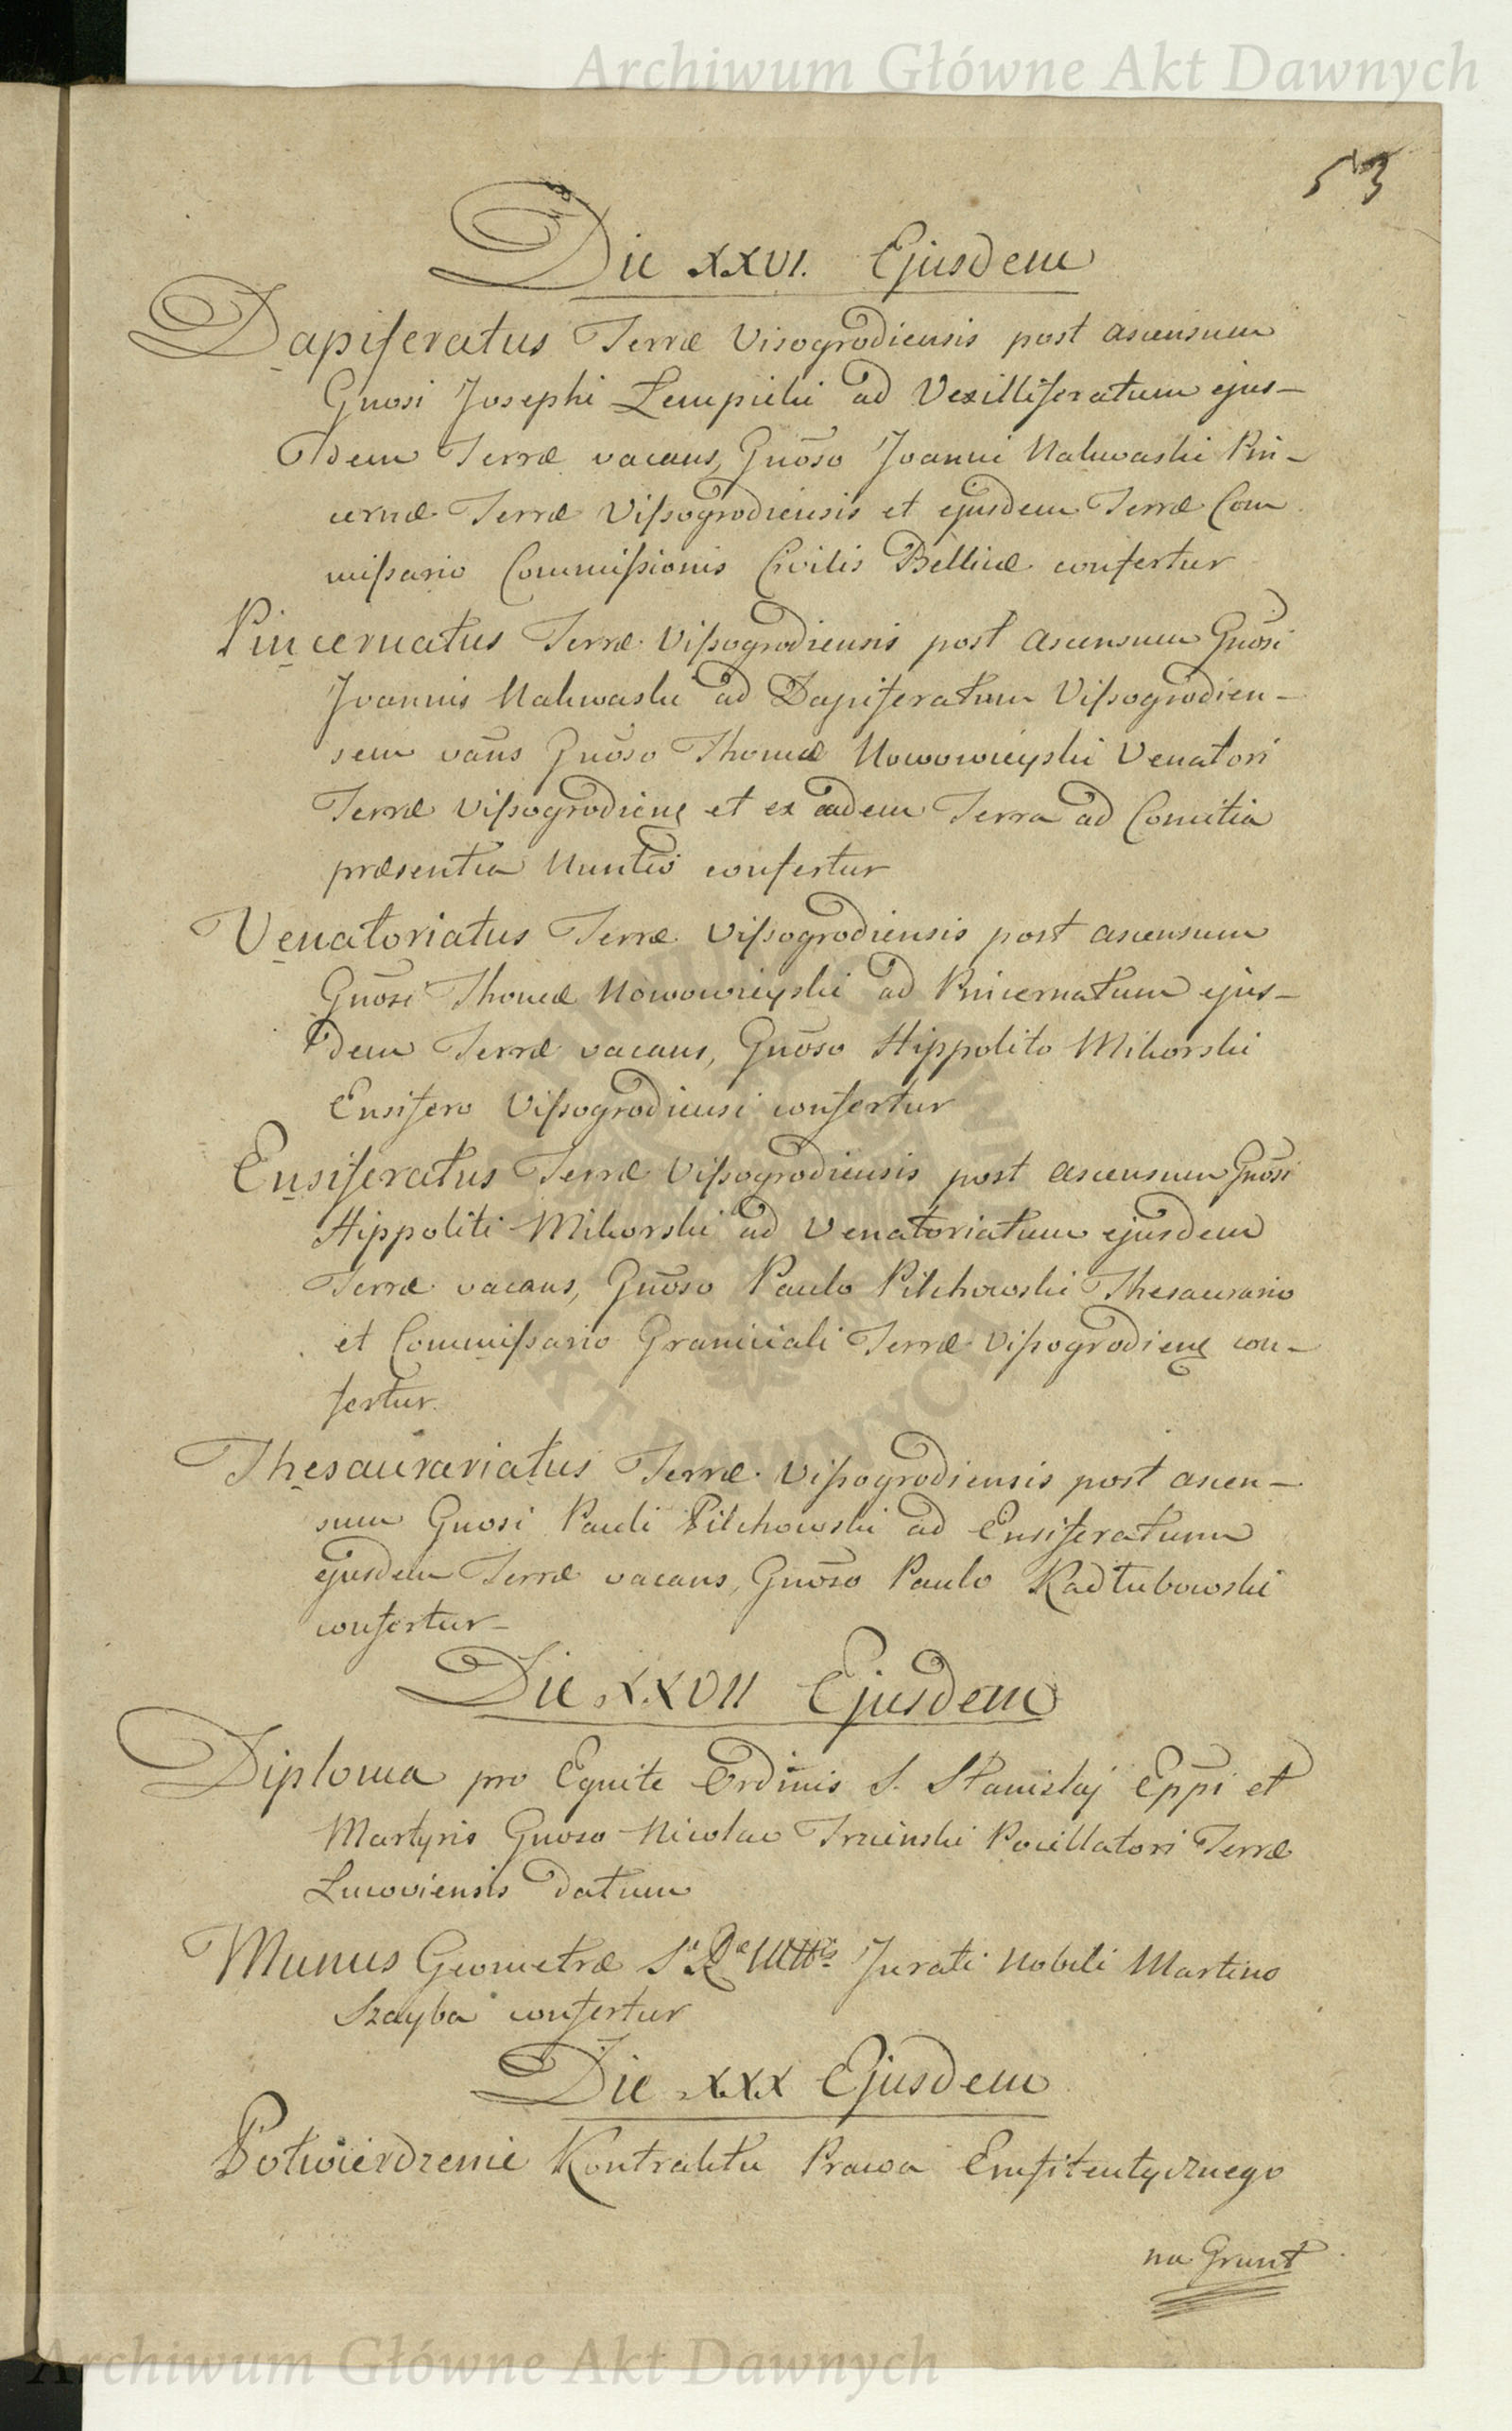 Archiwum Główne Akt Dawnych
53
Die XXVI. Ejusdem
Dapiferatus Terræ Visogrodiensis post ascensum
Gnosi Josephi Lempicki ad Vexilliferatum ejus-
dem Terræ vacans, Gnōso Joanni Nakwaski Pin-
cernæ Terræ Viſsogrodiensis et ejusdem Terræ Com
miſsario Commiſsionis Civilis Bellicæ confertur
Pincernatus Terræ Viſsogrodiensis post ascensum Gnōsi
Joannis Nakwaski ad Dapiferatum Viſsogrodien-
sem vāns Gnōso Thomæ Nowowieyski Venatori
Terræ Viſsogrodieng et ex eadem Terra ad Comitia
præsentia Nuntio confertur
Venatoriatus Terræ Viſsogrodiensis post ascensum
Gnōsi Thomæ Nowowieyski ad Pincernatum ejus-
dem Terræ vacans, Gnōso Hippolito Mikorski
Ensifero Viſsogrodiensi confertur
Ensiferatus Terræ Viſsogrodiensis post ascensum Gnōsi
Hippoliti Mikorski ad Venatoriatum ejusdem
Terræ vacans, Gnōso Paulo Pilchowski Thesaurario
et Commiſsario Graniciali Terræ Viſsogrodieng con-
fertur.
Thesaurariatus Terræ Viſsogrodiensis post ascen-
sum Gnosi Pauli Pilchowski ad Ensiferatum
ejusdem Terræ vacans, Gnōso Paulo Kadłubowski
confertur-
Die XXVII Ejusdem
Diploma pro Equite Ordinis S. Stanislaj Ep̄pi et
Martyris Gnoso Nicolao Trzcinski Pocillatori Terræ
Lucoviensis datum
Munus Geometræ Sæ Ræ Mttis Jurati Nobili Martino
Szayba confertur
Die XXX Ejusdem
Potwierdzenie Kontraktu Prawa Emfiteutycznego
na Grunt
Archiwum Główne Akt Dawnych